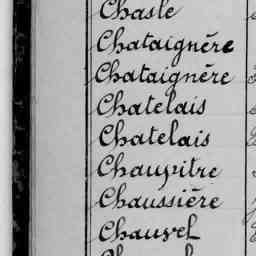 Chasle
Chataignère
Chataignère
Chatelais
Chatelais
Chaupitre
Chaussière
Chauvel